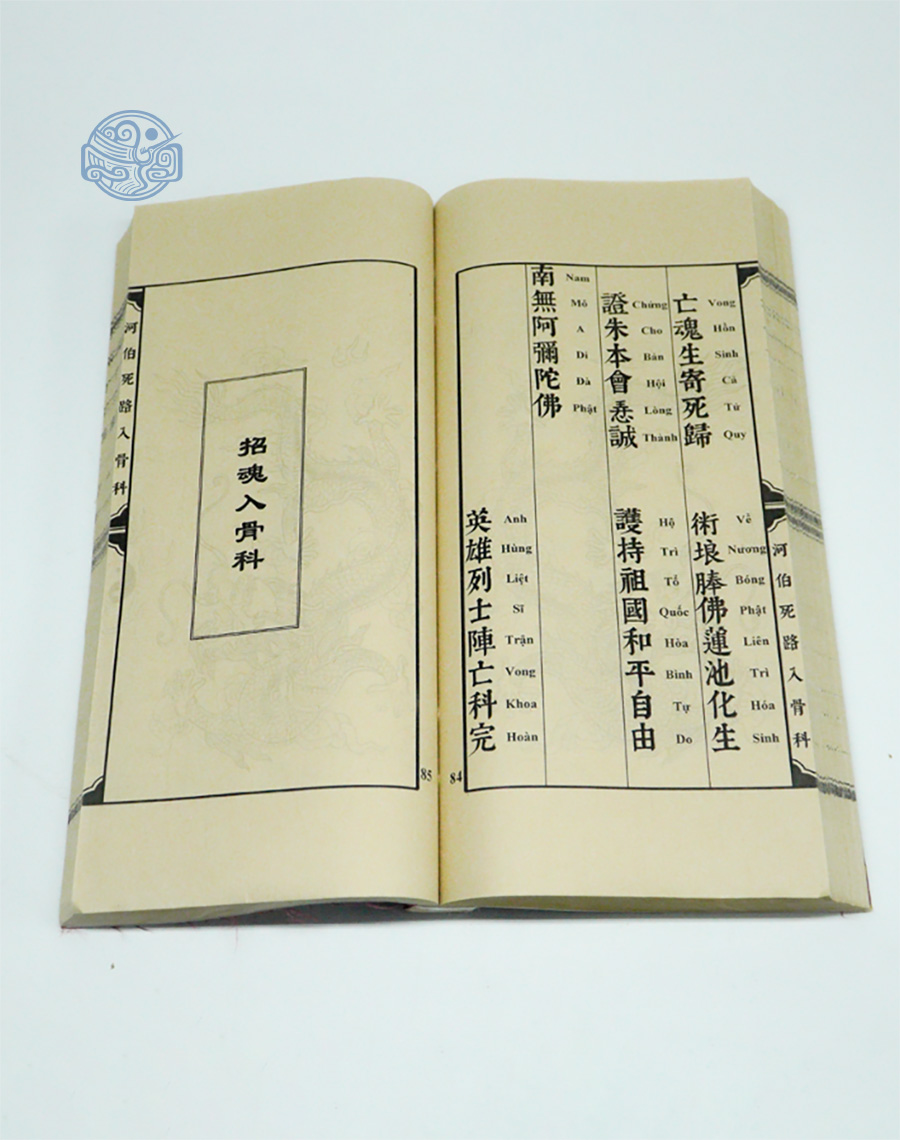 河伯死路入骨科
亡魂生寄死歸
Vong Hồn Sinh Cả Tử Quy
術埌䏾佛蓮池化生
Về Nương Bóng Phật Liên Trì Hóa Sinh
證朱本會𢚸誠
Chứng Cho Bản Hội Lòng Thành
護持祖國和平自由
Hộ Trì Tổ Quốc Hòa Bình Tự Do
南無阿彌陀佛
Nam Mô A Di Đà Phật
英雄列士陣亡科完
Anh Hùng Liệt Sĩ Trận Vong Khoa Hoàn
84
85
招魂入骨科
河伯死路入骨科